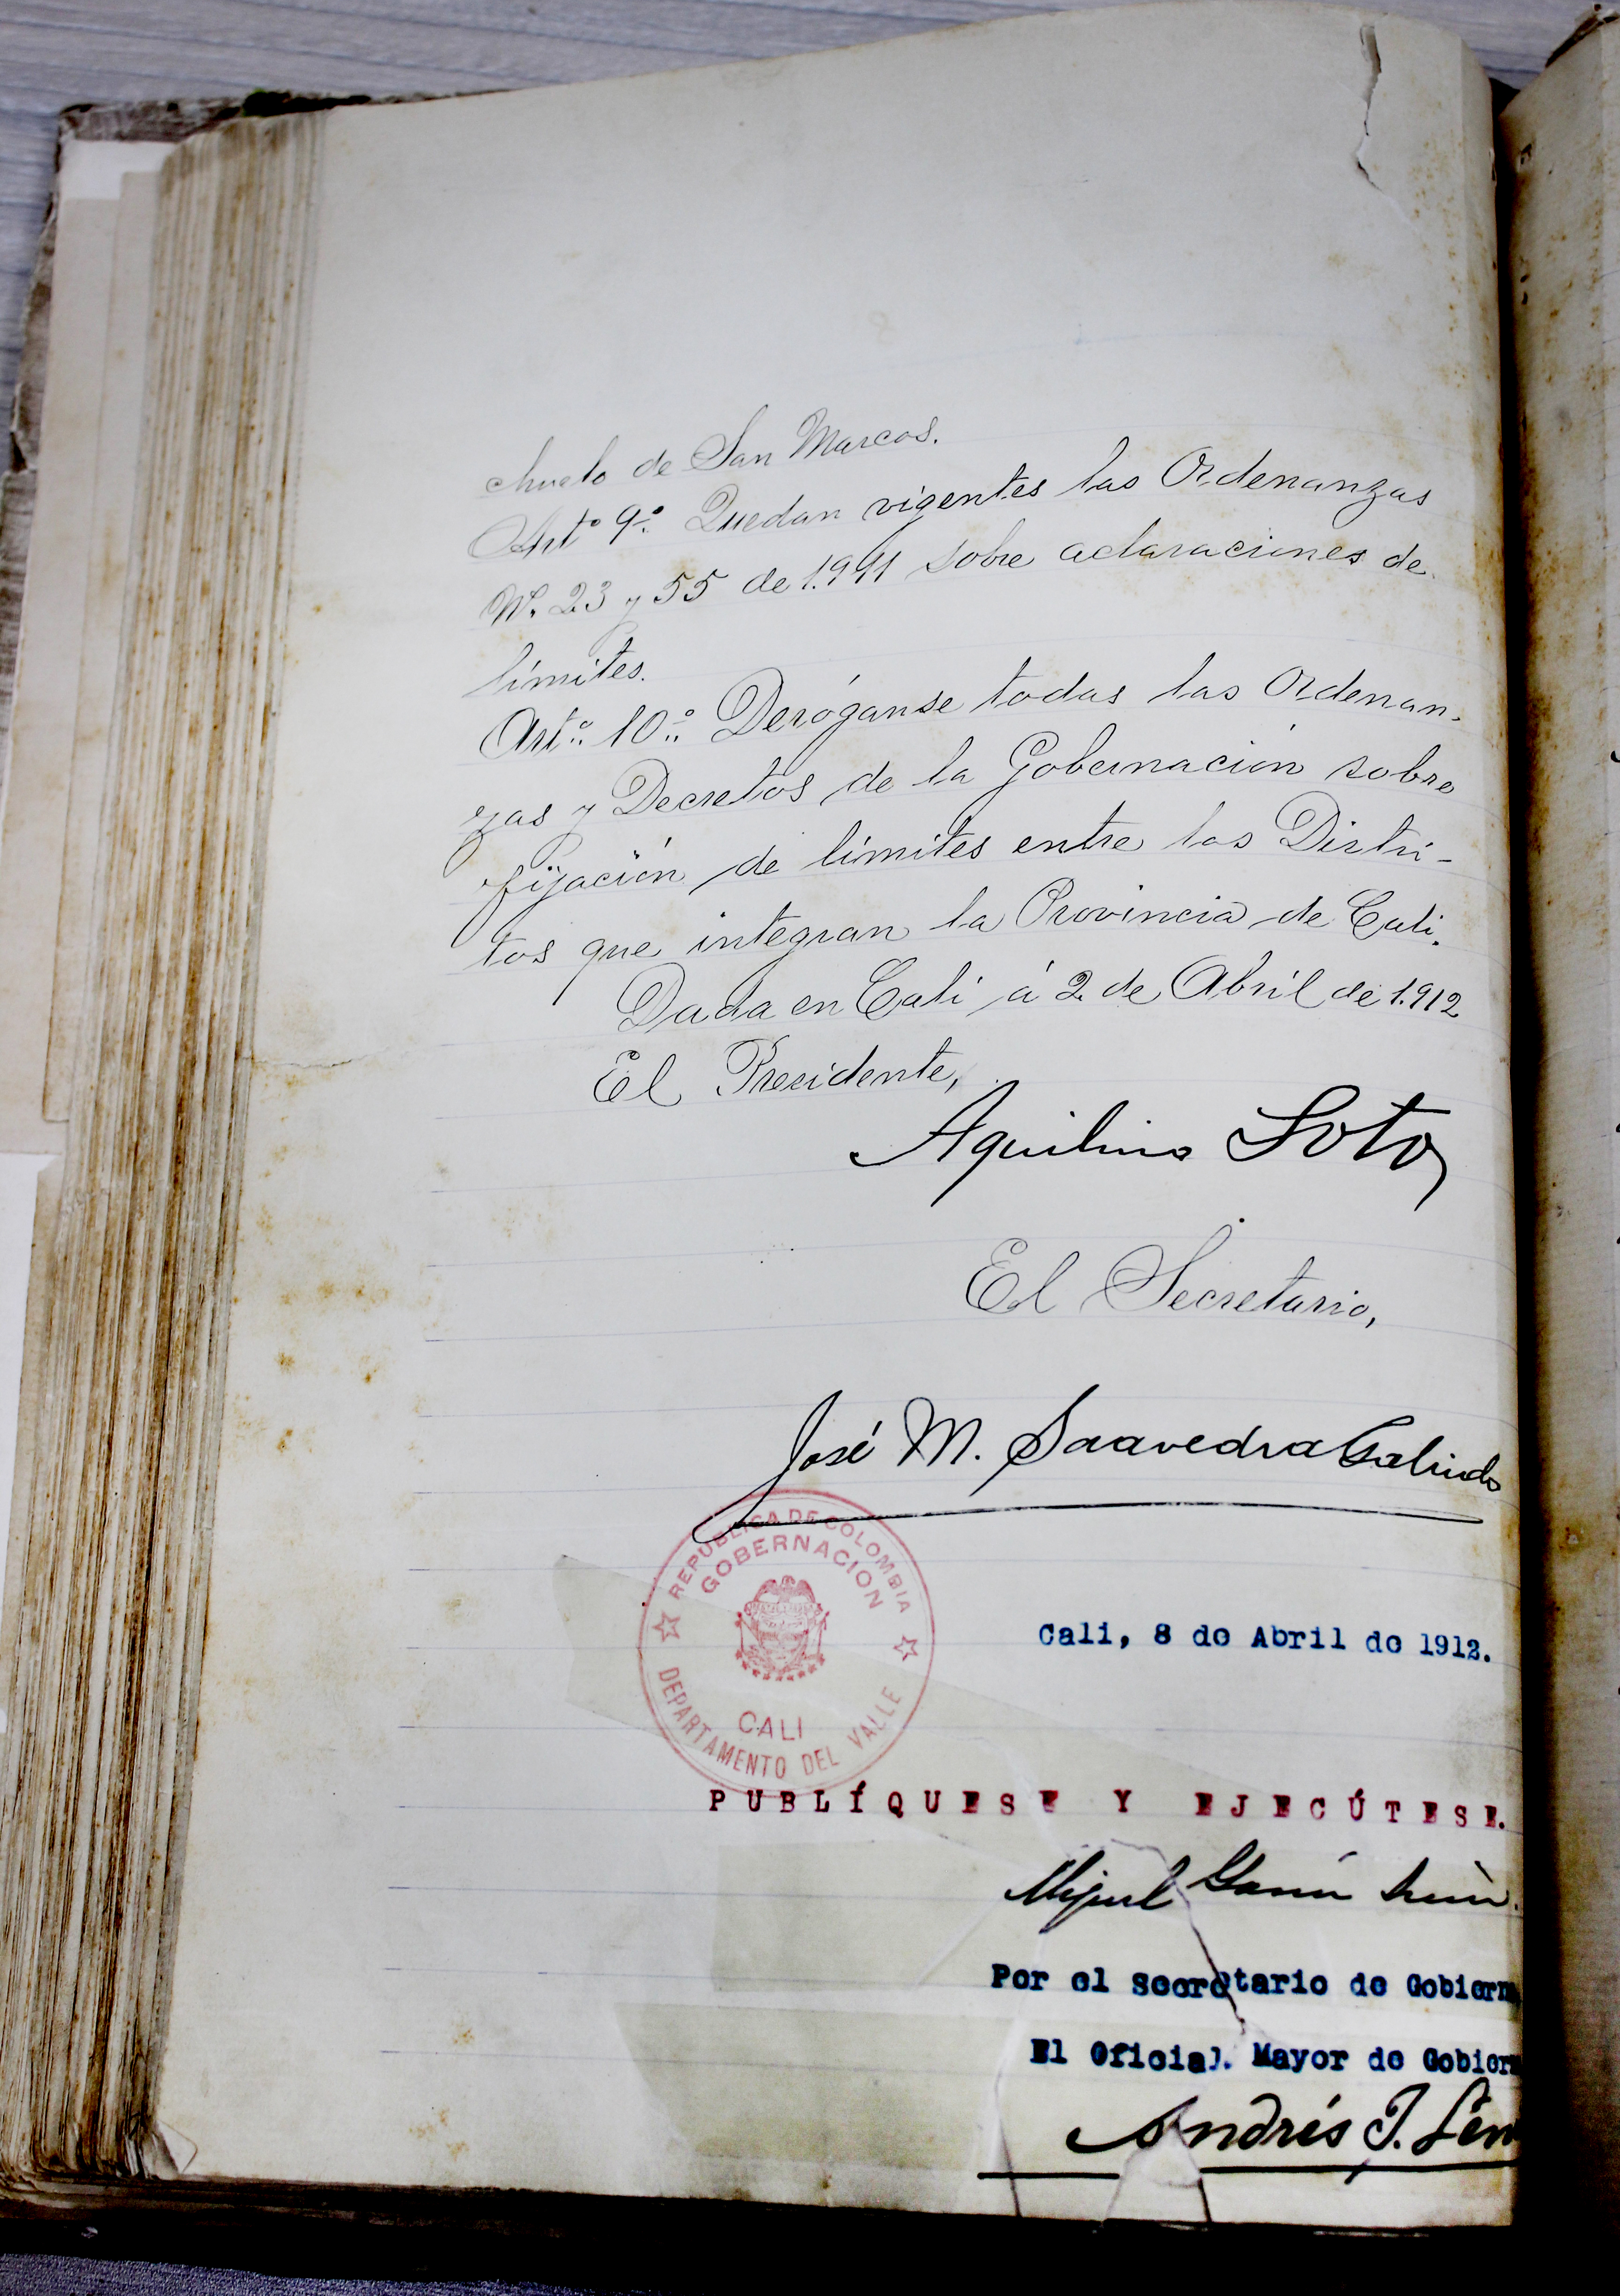 chuelo de San Marcos.
Artº 9º. Quedan vigentes las Ordenanzas
Nº. 23 y 55 de 1.911 sobre aclaraciones de
límites.
Artº. 10º. Deróganse todas las Ordenan-
zas y Decretos de la Gobernación sobre
fijación de límites entre los Distri-
tos que integran la Provincia de Cali.
Dada en Cali á 2 de Abril de 1.912
El Presidente,
Aquilino Soto
El Secretario,
José M. Saavedra Galindo
REPUBLICA DE COLOMBIA
GOBERNACION
CALI
DEPARTAMENTO DEL VALLE
Cali, 8 de Abril de 1912.
PUBLÍQUESE Y EJECÚTESE.
Miguel
Por el Secretario de Gobierno
El Oficial Mayor de Gobier
Andrés J.